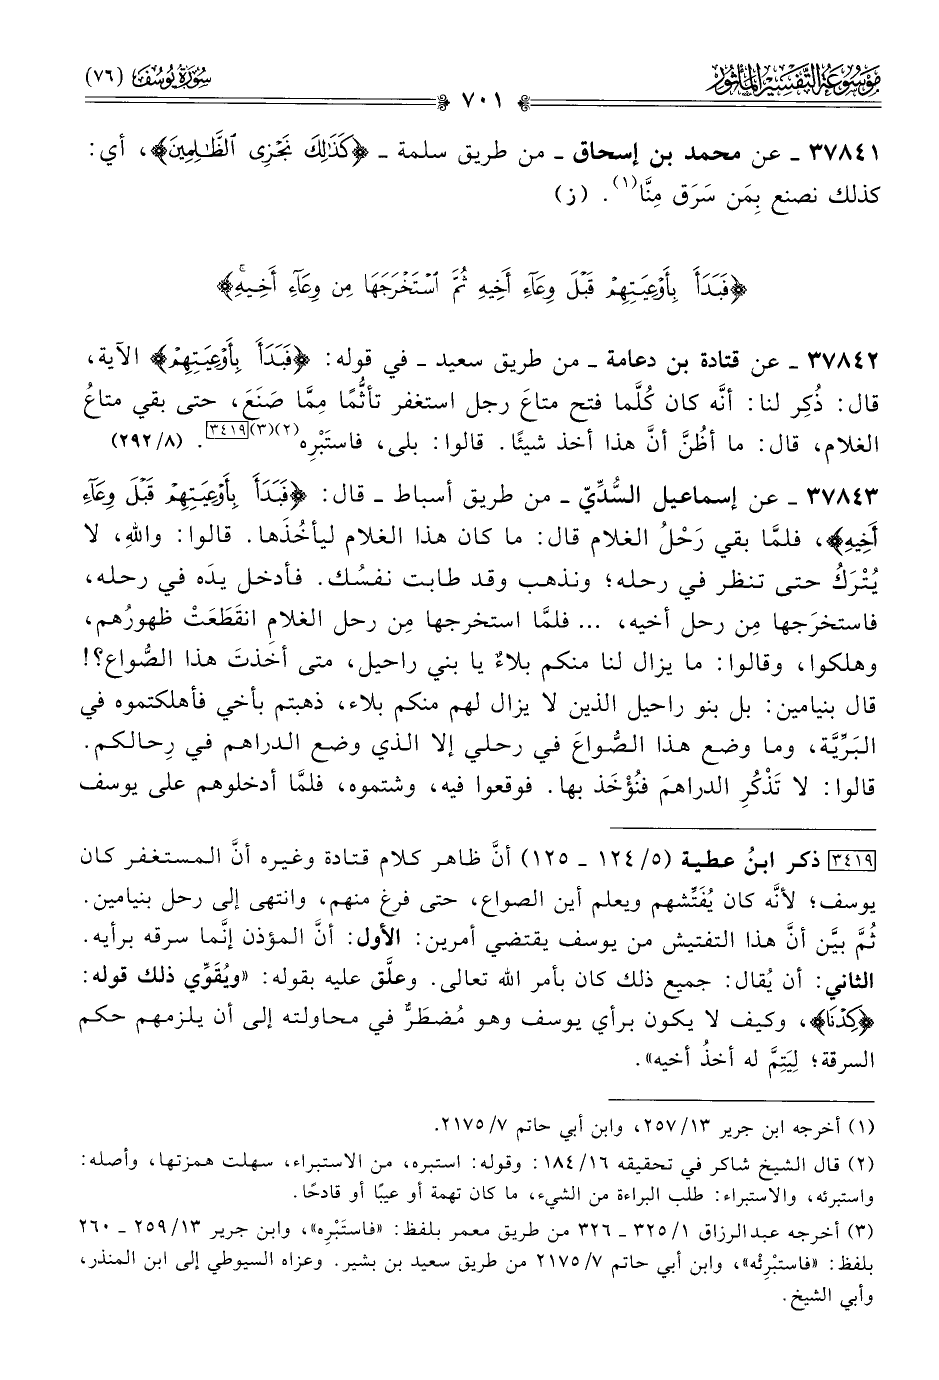 مَوْسُوعَة التَّفْسِير المَأثُور
سُورَةُ يُوسُفَ (٧٦)
٧٠١
٣٧٨٤١ ـ عن محمد بن إسحاق ـ من طريق سلمة ـ ﴿كَذَٰلِكَ نَجْزِى ٱلظَّـٰلِمِينَ﴾، أي:
كذلك نصنع بِمَن سَرَق مِنَّا(١). (ز)
﴿فَبَدَأَ بِأَوْعِيَتِهِمْ قَبْلَ وِعَآءِ أَخِيهِ ثُمَّ ٱسْتَخْرَجَهَا مِن وِعَآءِ أَخِيهِۚ﴾
٣٧٨٤٢ ـ عن قتادة بن دعامة ـ من طريق سعيد ـ في قوله: ﴿فَبَدَأَ بِأَوْعِيَتِهِمْ﴾ الآية،
قال: ذُكِر لنا: أنَّه كان كُلَّما فتح متاعَ رجل استغفر تأثُّمًا مِمَّا صَنَعَ، حتى بقي متاعُ
الغلام، قال: ما أظُنَّ أنَّ هذا أخذ شيئًا. قالوا: بلى، فاستَبْرِه(٢)(٣)[٣٤١٩]. (٨/ ٢٩٢)
٣٧٨٤٣ ـ عن إسماعيل السُّدِّيّ ـ من طريق أسباط ـ قال: ﴿فَبَدَأَ بِأَوْعِيَتِهِمْ قَبْلَ وِعَآءِ
أَخِيهِ﴾، فلمَّا بقي رَحْلُ الغلام قال: ما كان هذا الغلام ليأخُذَها. قالوا: واللهِ، لا
يُتْرَكُ حتى تنظر في رحله؛ ونذهب وقد طابت نفسُك. فأدخل يدَه في رحله،
فاستخرَجها مِن رحل أخيه، ... فلمَّا استخرجها مِن رحل الغلامِ انقَطَعَتْ ظهورُهم،
وهلكوا، وقالوا: ما يزال لنا منكم بلاءٌ يا بني راحيل، متى أخذتَ هذا الصُّواع؟!
قال بنيامين: بل بنو راحيل الذين لا يزال لهم منكم بلاء، ذهبتم بأخي فأهلكتموه في
البَرِّيَّة، وما وضع هذا الصُّواعَ في رحلي إلا الذي وضع الدراهم في رِحالكم.
قالوا: لا تَذْكُرِ الدراهمَ فنُؤْخَذ بها. فوقعوا فيه، وشتموه، فلمَّا أدخلوهم على يوسف
[٣٤١٩] ذكر ابنُ عطية (٥/ ١٢٤ ـ ١٢٥) أنَّ ظاهر كلام قتادة وغيره أنَّ المستغفر كان
يوسف؛ لأنَّه كان يُفَتِّشهم ويعلم أين الصواع، حتى فرغ منهم، وانتهى إلى رحل بنيامين.
ثُمَّ بيَّن أنَّ هذا التفتيش من يوسف يقتضي أمرين: الأول: أنَّ المؤذن إنَّما سرقه برأيه.
الثاني: أن يُقال: جميع ذلك كان بأمر الله تعالى. وعلَّق عليه بقوله: «ويُقَوِّي ذلك قوله:
﴿كِدْنَا﴾، وكيف لا يكون برأي يوسف وهو مُضطَرٌّ في محاولته إلى أن يلزمهم حكم
السرقة؛ لِيَتِمَّ له أخذُ أخيه».
(١) أخرجه ابن جرير ١٣/ ٢٥٧، وابن أبي حاتم ٧/ ٢١٧٥.
(٢) قال الشيخ شاكر في تحقيقه ١٦/ ١٨٤: وقوله: استبره، من الاستبراء، سهلت همزتها، وأصله:
واستبرئه، والاستبراء: طلب البراءة من الشيء، ما كان تهمة أو عيبًا أو قادحًا.
(٣) أخرجه عبدالرزاق ١/ ٣٢٥ ـ ٣٢٦ من طريق معمر بلفظ: «فاستَبْرِه»، وابن جرير ١٣/ ٢٥٩ ـ ٢٦٠
بلفظ: «فاستبْرِئْه»، وابن أبي حاتم ٧/ ٢١٧٥ من طريق سعيد بن بشير. وعزاه السيوطي إلى ابن المنذر،
وأبي الشيخ.